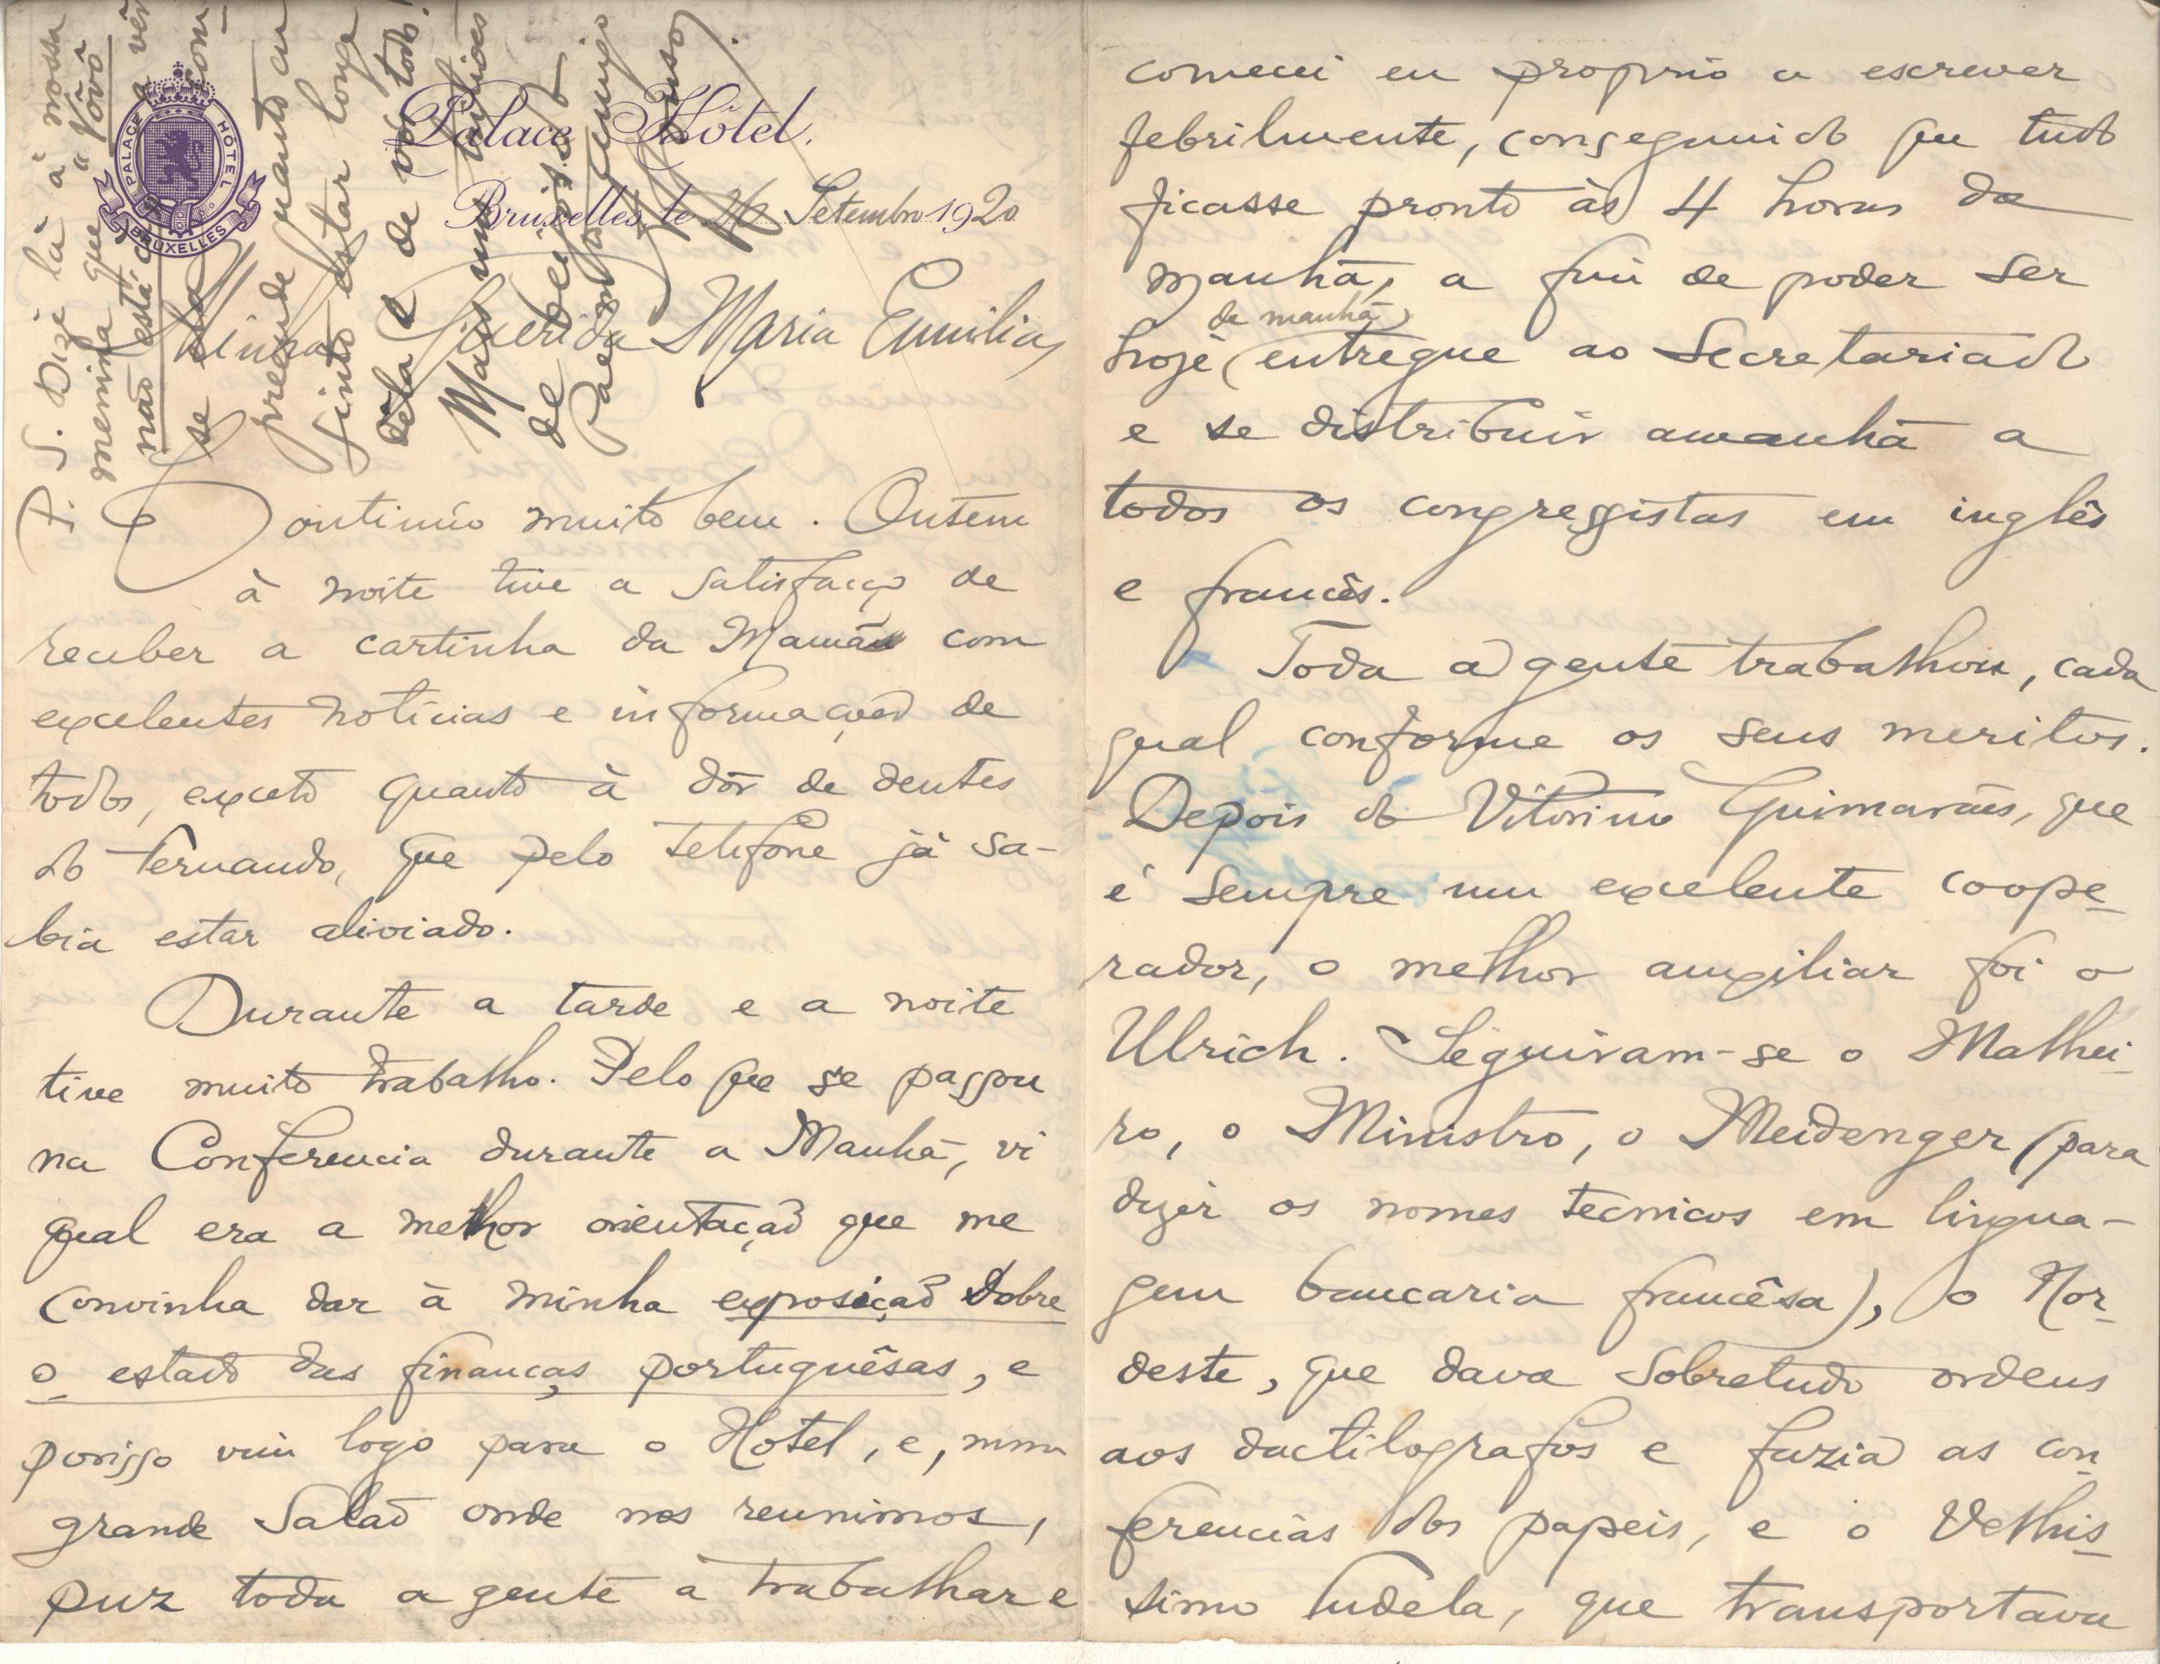 PALACE HÔTEL
BRUXELLES
Palace Hôtel.
Bruxelles, le 26 Setembro 1920
Minha Querida Maria Emilia,
Continúo muito bem. Ontem
à noite tive a satisfação de
receber a cartinha da Mamã com
excelentes noticias e informações de
todos, exceto quanto à dôr de dentes
do Fernando, que pelo telefone já sa-
bia estar aliviado.
Durante a tarde e a noite
tive muito trabalho. Pelo que se passou
na Conferencia durante a Manhã, vi
qual era a melhor orientação que me
convinha dar à minha exposição sobre
o estado das finanças portuguêsas, e
porisso vim logo para o Hotel, e, num
grande Salão onde nos reunimos,
puz toda a gente a trabalhar e
comecei eu proprio a escrever
febrilmente, conseguindo que tudo
ficasse pronto às 4 horas da
manhã, a fim de poder ser
hoje (de manhã) entregue ao Secretariado
e se distribuir amanhã a
todos os congressistas em inglês
e francês.
Toda a gente trabalhou, cada
qual conforme os seus meritos.
Depois do Vitorino Guimarães, que
é sempre um excelente coope-
rador, o melhor auxiliar foi o
Ulrich. Seguiram-se o Malhei-
ro, o Ministro, o Meidenger (para
dizer os nomes tecnicos em lingua-
gem bancaria francêsa), o Nor-
deste, que dava sobretudo ordens
aos dactilografos e fazia as con-
ferencias dos papeis, e o Velhis-
simo Tudela, que transportava
P.S. Dize lá à nossa
menina que o "Vôvô
não está
se
prende quanto eu
sinto estar longe
dela e de vós todos!
Mais mil milhões
de beijos do
Pae m.to amigo
Afonso.